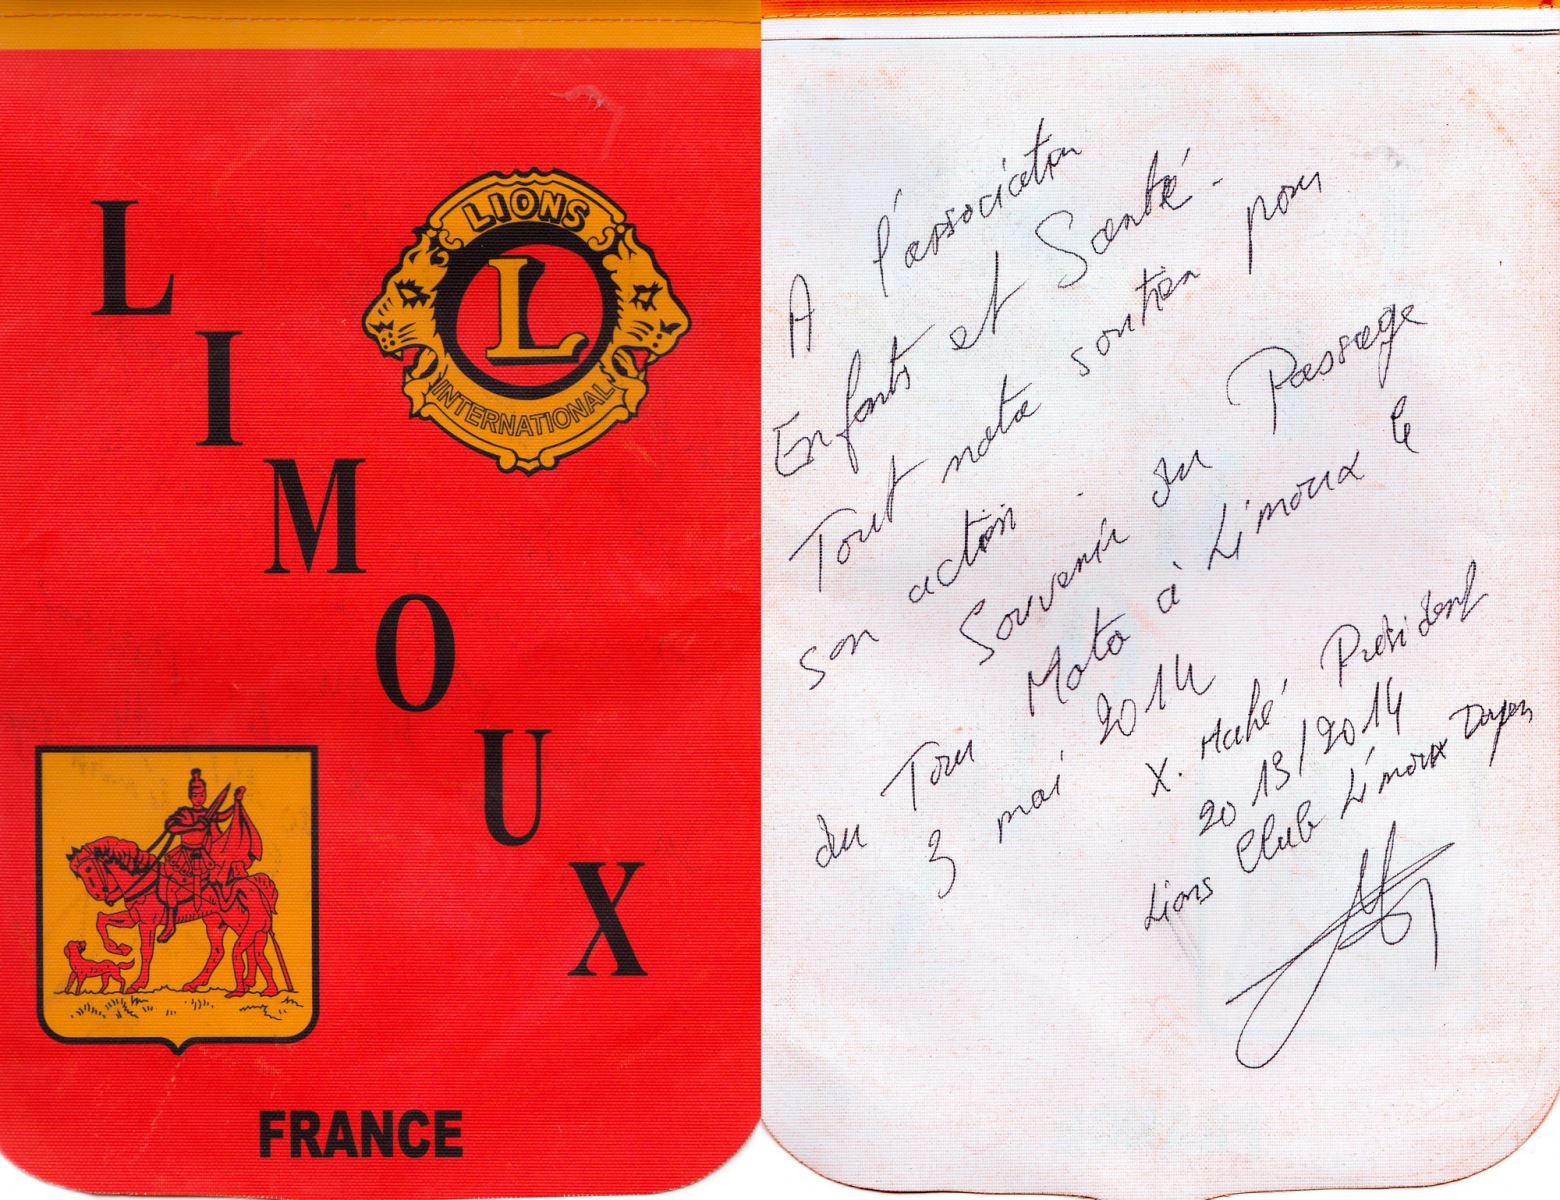 LIMOUX
LIONS
L
INTERNATIONAL
FRANCE
A l'association
Enfants et Santé.
Tout notre soutien pour
son action.
Souvenir du Passage
du Tour Moto à Limoux le
3 mai 2014
X. Mahé Président
2013/2014
Lions Club Limoux Doyen